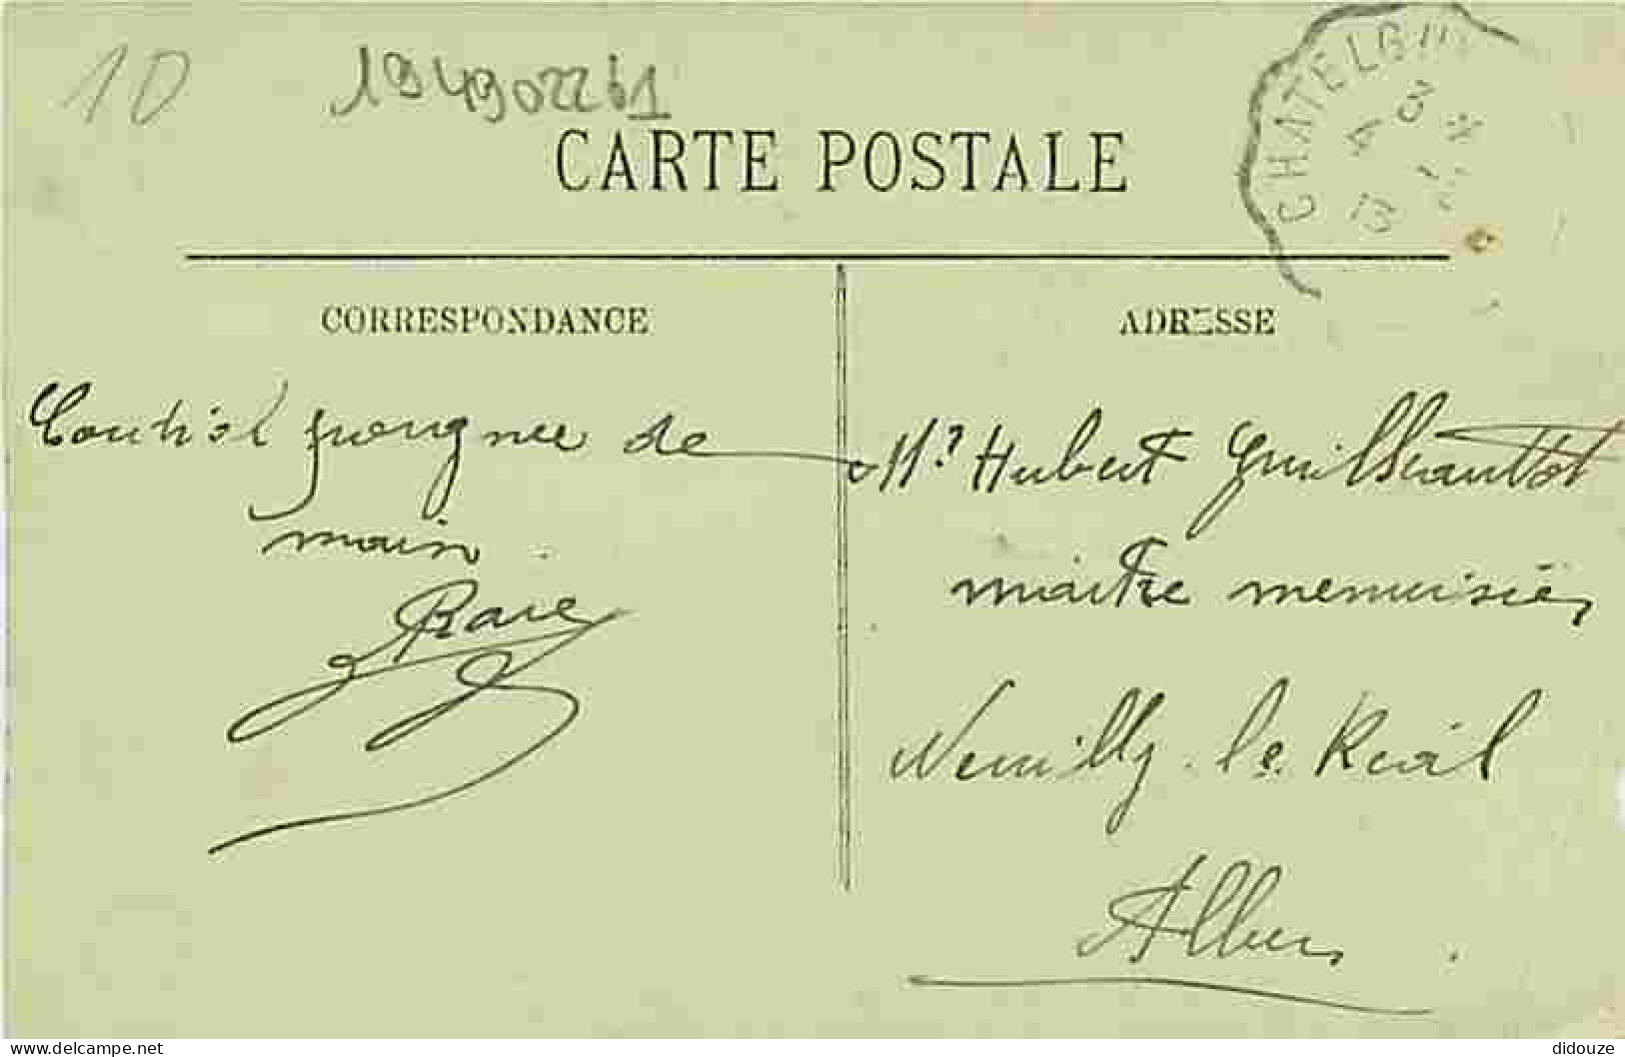 10
194902261
CARTE POSTALE
CHATELGUY
3 4
13
CORRESPONDANCE
ADRESSE
Cordial poignée de
main
Mr Hubert Guilleautot
maitre menuisier
Neuilly-le-Réal
Allier
www.delcampe.net
didouze